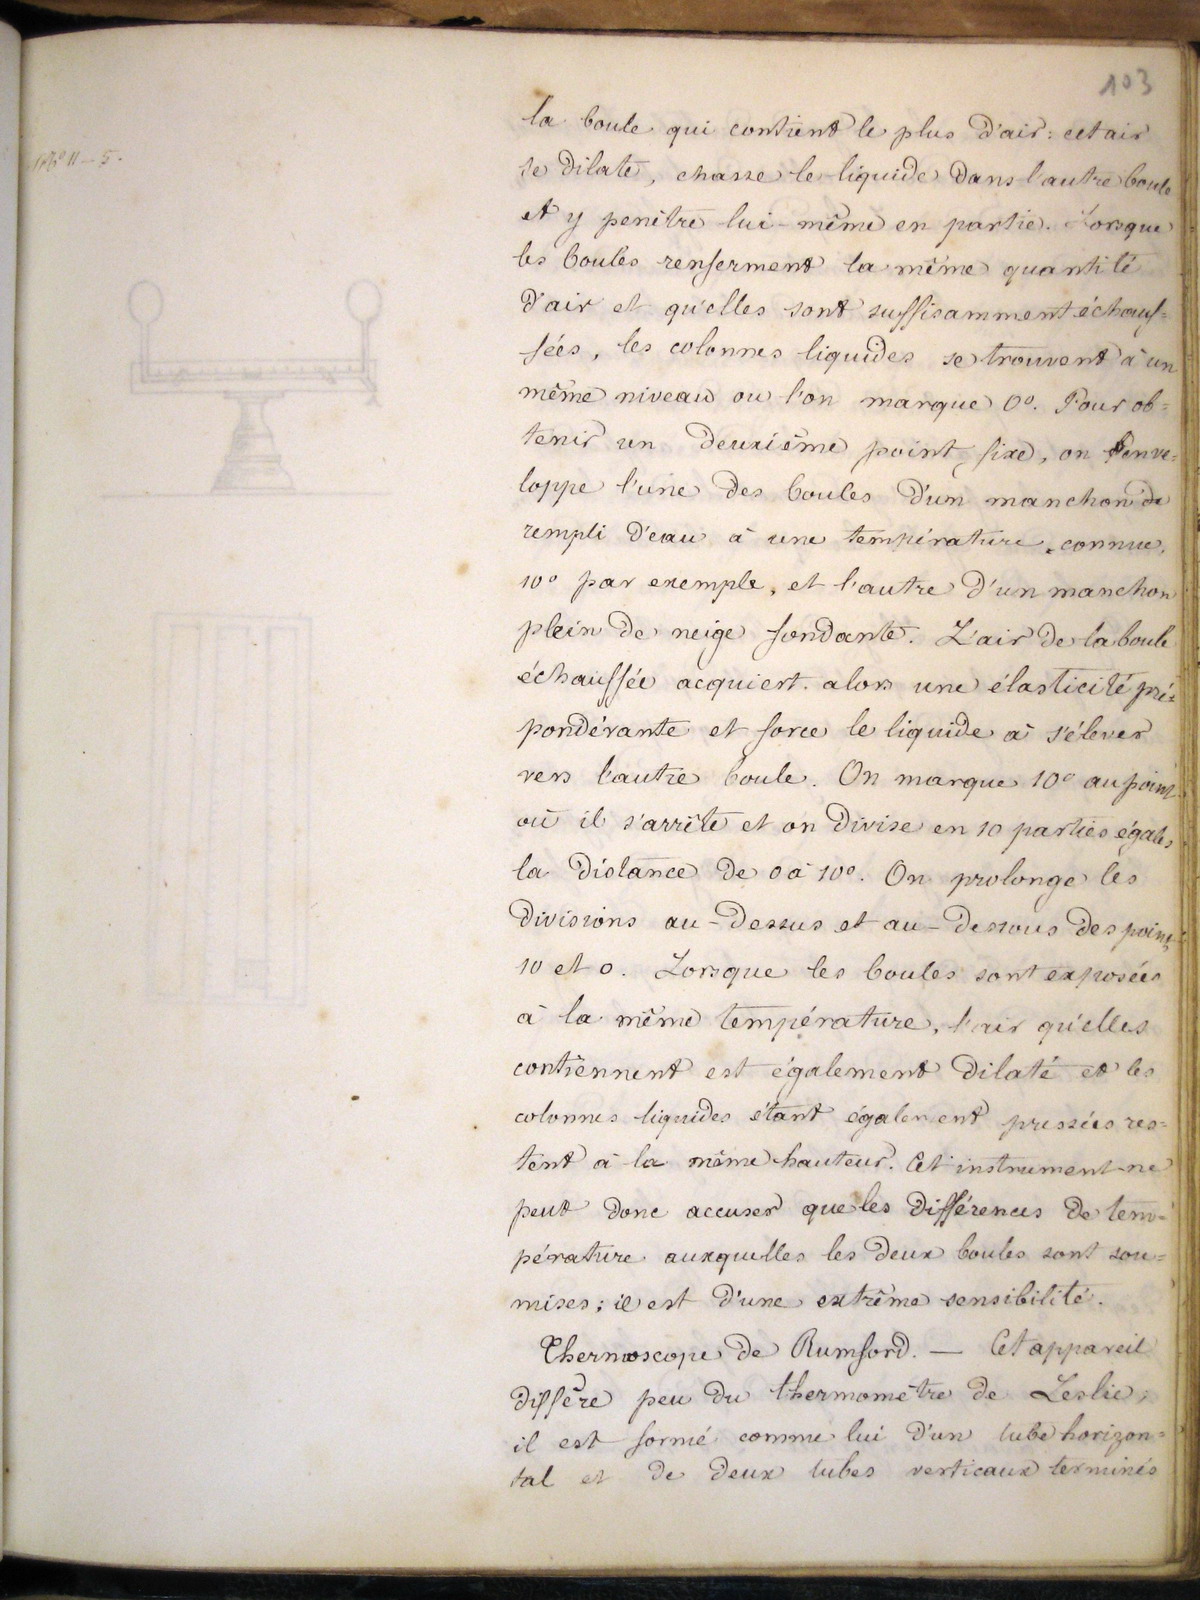 103
N° 11 - 5.
la boule qui contient le plus d'air : cet air
se dilate, chasse le liquide dans l'autre boule
et y penètre lui-même en partie. Lorsque
les boules renferment la même quantité
d'air et qu'elles sont suffisamment échauf=
fées, les colonnes liquides se trouvent à un
même niveau ou l'on marque 0°. Pour ob=
tenir un deuxième point fixe, on enve=
loppe l'une des boules d'un manchon de
rempli d'eau à une température connue,
10° par exemple, et l'autre d'un manchon
plein de neige fondante. L'air de la boule
échauffée acquiert alors une élasticité pré=
pondérante et force le liquide à s'élever
vers l'autre boule. On marque 10° au point
où il s'arrête et on divise en 10 parties égales
la distance de 0 à 10°. On prolonge les
divisions au-dessus et au-dessous des points
10 et 0. Lorsque les boules sont exposées
à la même température, l'air qu'elles
contiennent est également dilaté et les
colonnes liquides étant également pressées res=
tent à la même hauteur. Cet instrument ne
peut donc accuser que les différences de tem=
pérature auxquelles les deux boules sont sou=
mises ; il est d'une extrême sensibilité.
Thermoscope de Rumford. — Cet appareil
diffère peu du thermomètre de Leslie ;
il est formé comme lui d'un tube horizon=
tal et de deux tubes verticaux terminés